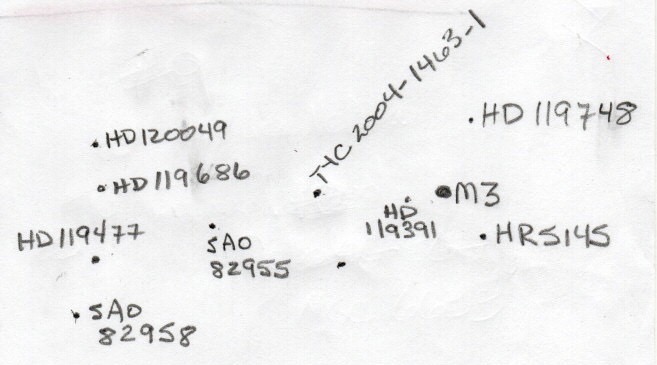 TYC 2004-1463-1
HD 119748
HD120049
HD 119686
M3
HD
119391
HD119477
SAO
82955
HR5145
SAO
82958